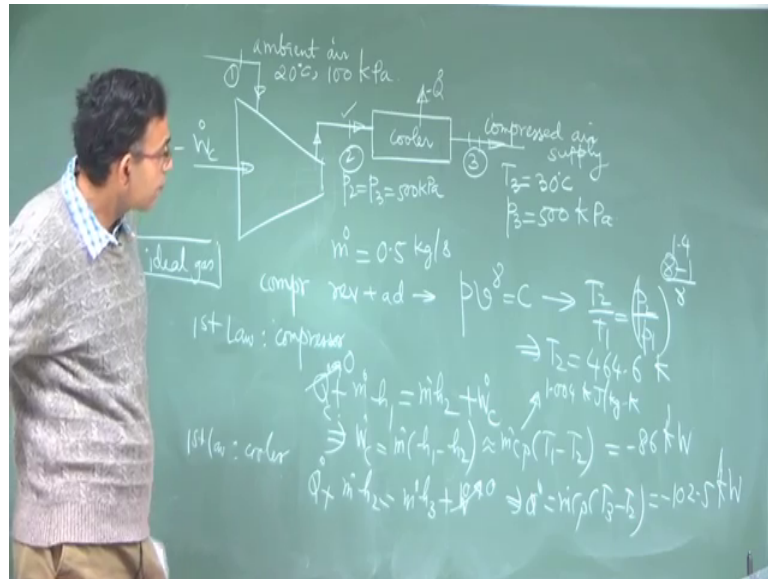 ambient air
① 20°C, 100 kPa.
-Q̇
- Ẇc
cooler
compressed air
supply
②
③
P2=P3=500kPa
T3=30°C
P3=500 kPa
ṁ = 0.5 kg/s
ideal gas
compr rev + ad → pv^γ=C → T2/T1=(P2/P1)^((γ-1)/γ)
1.4
1st Law: compressor
⇒ T2=464.6 K
Q̇c + ṁh1=ṁh2+Ẇc
0
1.004 kJ/kg-K
⇒ Ẇc=ṁ(h1-h2) ≈ ṁcp(T1-T2) = -86 kW
1st law: cooler
Q̇ + ṁh2=ṁh3+Ẇ 0 ⇒ Q̇=ṁcp(T3-T2)=-102.5 kW